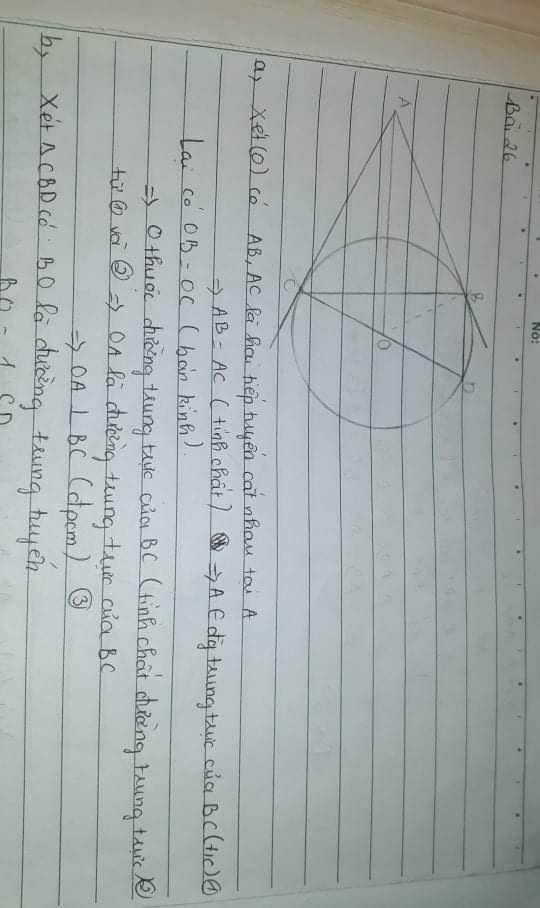 No:
Bài 26
A
B
C
O
D
a, Xét (O) có AB, AC là hai tiếp tuyến cắt nhau tại A
=> AB = AC (tính chất) => A ∈ đg trung trực của BC (t/c) ①
Lại có OB = OC (bán kính).
=> O thuộc đường trung trực của BC (tính chất đường trung trực) ②
từ ① và ② => OA là đường trung trực của BC
=> OA ⊥ BC (đpcm) ③
b, Xét △CBD có: BO là đường trung tuyến
BO = 1 CD